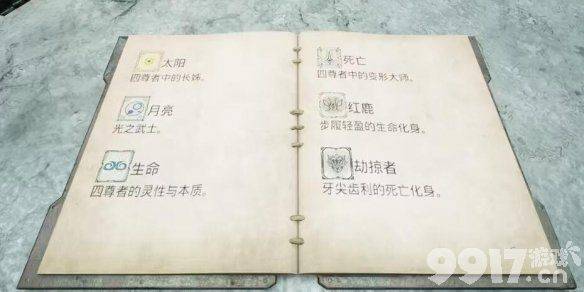 太阳
四尊者中的长姊。
月亮
光之武士。
生命
四尊者的灵性与本质。
死亡
四尊者中的变形大师。
红鹿
步履轻盈的生命化身。
劫掠者
牙尖齿利的死亡化身。
9917.cn
游戏